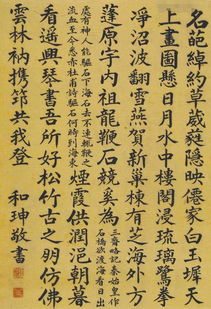 名葩綽約草葳蕤隱映僊家白玉墀天
上畫圖懸日月水中樓閣浸琉璃鷺拳
淨沼波翻雪燕賀新巢棟有芝海外方
蓬原宇內祖龍鞭石競奚為三齋略記秦始皇作石橋欲渡海看日出
處有神人能驅石下海石去不速輒鞭之
流血至今悉赤杜甫詩驅石何時到海東煙霞供潤浥朝暮
看遙興琴書吾所好松竹古之明仿佛
雲林衲攜筇共我登
和珅敬書